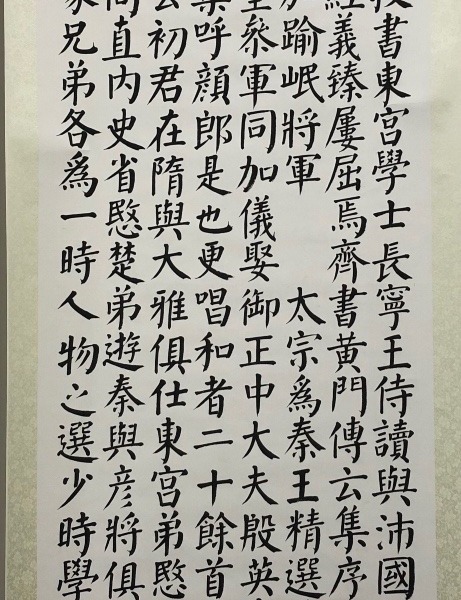 書東宮學士長寧王侍讀與沛國
經義臻屢屈焉齊書黃門傳云集序
踰岷將軍　太宗爲秦王精選
參軍同加儀娶御正中大夫殷英
呼顏郎是也更唱和者二十餘首
初君在隋與大雅俱仕東宮弟愍
直內史省愍楚弟遊秦與彥將俱
兄弟各爲一時人物之選少時學